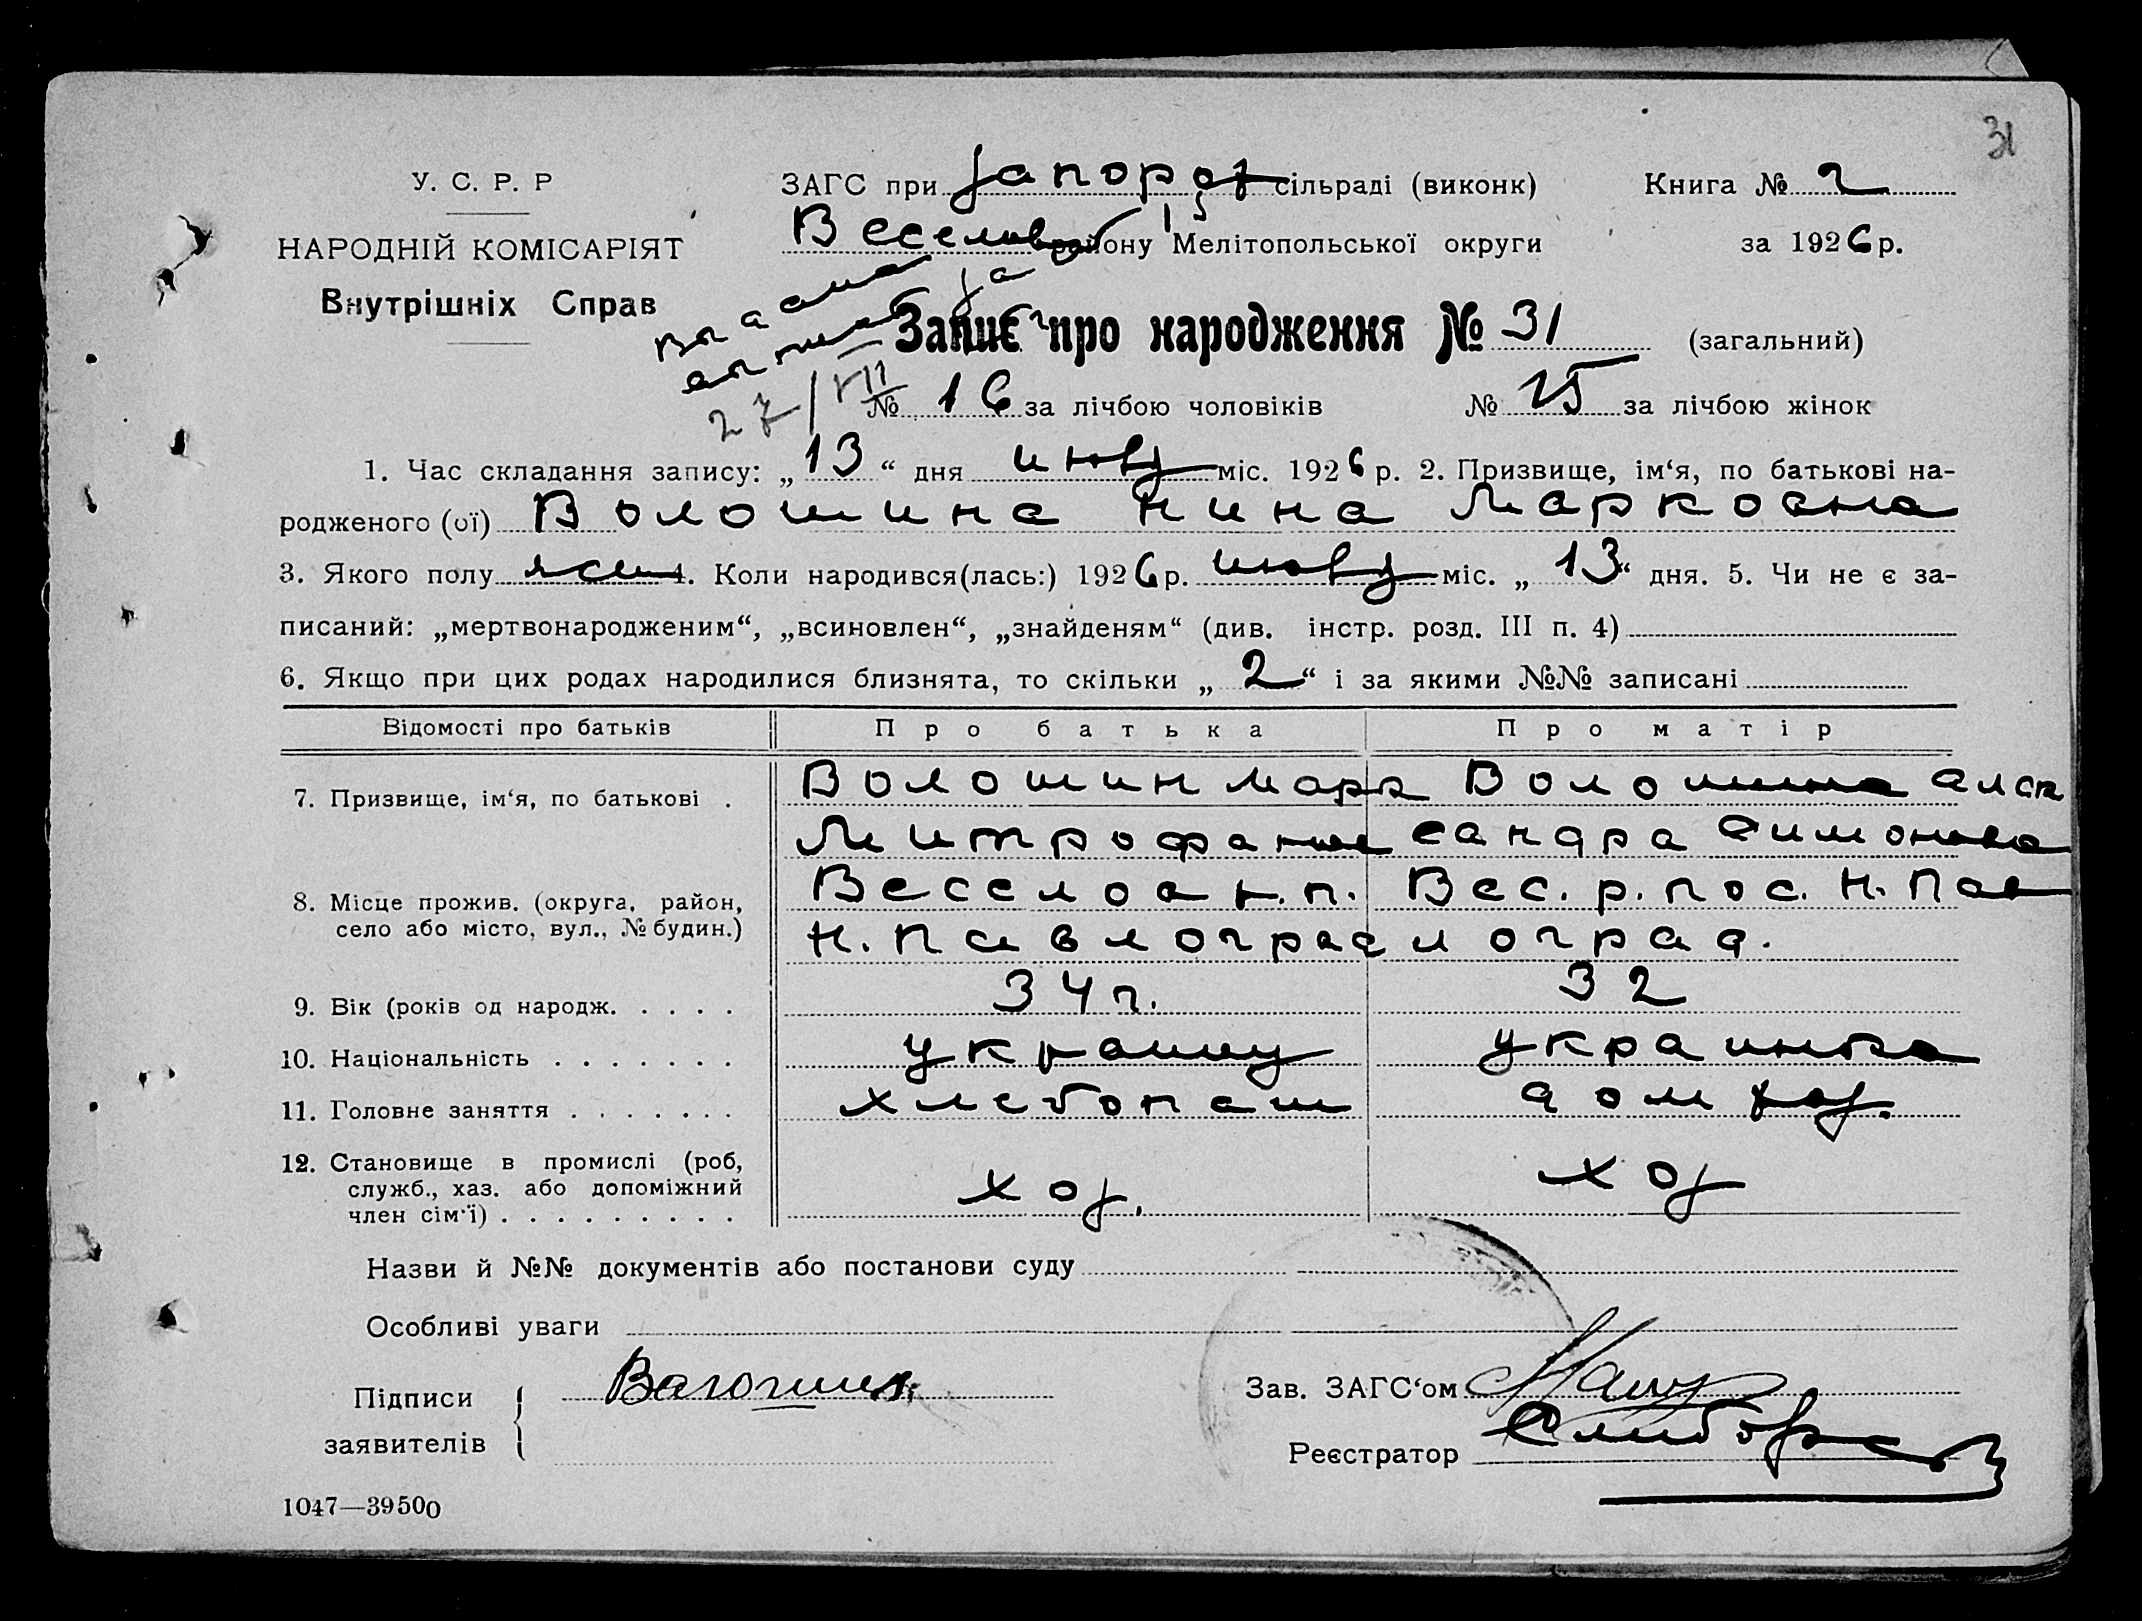 31
У. С. Р. Р
НАРОДНІЙ КОМІСАРІЯТ
Внутрішніх Справ
ЗАГС при Запорож сільраді (виконк)
Книга № 2
Веселов району Мелітопольської округи
за 1926 р.
Запис про народження № 31 (загальний)
27/VII
№ 16 за лічбою чоловіків № 15 за лічбою жінок
1. Час складання запису: „13“ дня міс. 1926 р. 2. Призвище, ім‘я, по батькові на-
родженого (ої) Волошина Нина Марковна
3. Якого полу жен 4. Коли народився(лась:) 1926 р. міс. „13“ дня. 5. Чи не є за-
писаний: „мертвонародженим“, „всиновлен“, „знайденям“ (див. інстр. розд. III п. 4)
6. Якщо при цих родах народилися близнята, то скільки „2“ і за якими №№ записані
Відомості про батьків Про батька Про матір
7. Призвище, ім‘я, по батькові . Волошин Марк Волошина Алек
Митрофан сандра Симонова
8. Місце прожив. (округа, район, Веселов Вес. р. пос. Н. Пав
село або місто, вул., № будин.) Н. Павлоград лоград.
9. Вік (років од народж. . . . . 34 г. 32
10. Національність . . . . . . . украинец украинка
11. Головне заняття . . . . . . . хлебопаш дом хоз.
12. Становище в промислі (роб,
служб., хаз. або допоміжний хоз. хоз
член сім‘ї) . . . . . . . . .
Назви й №№ документів або постанови суду
Особливі уваги
Підписи Волошин Зав. ЗАГС‘ом
заявителів
Реєстратор
1047—39500